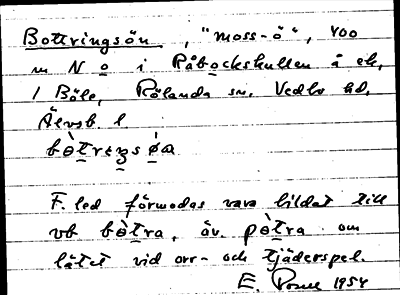 Bottringsön, "moss-ö", 400
m N o i Råbockskullen å ek.
1 Böle, Rölanda sn. Vedbo hd.
Älvsb. l
bòtrɛŋsøa
F. led förmodas vara bildat till
vb bòtra, äv. pòtra om
lätet vid orr- och tjäderspel.
E. 1954